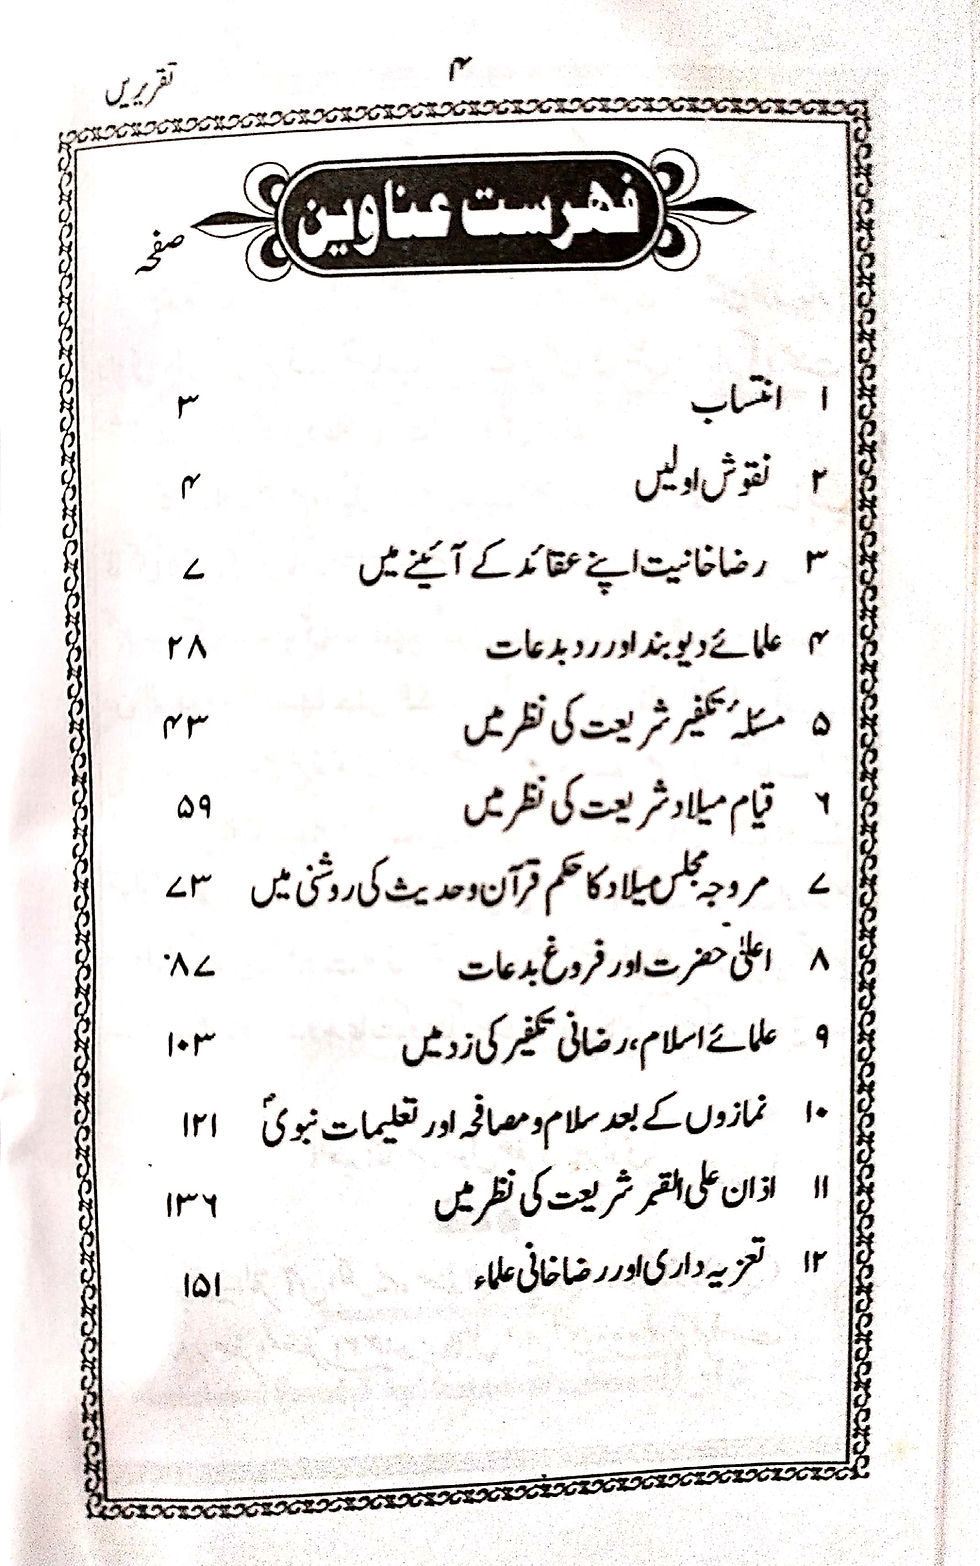 ۴ تقریریں
فہرست عناوین
صفحہ
۱ انتساب ۳
۲ نقوش اولیں ۴
۳ رضاخانیت اپنے عقائد کے آئینے میں ۷
۴ علمائے دیوبند اور رد بدعات ۲۸
۵ مسئلۂ تکفیر شریعت کی نظر میں ۴۳
۶ قیام میلاد شریعت کی نظر میں ۵۹
۷ مروجہ مجلس میلاد کا حکم قرآن و حدیث کی روشنی میں ۷۳
۸ اعلیٰ حضرت اور فروغ بدعات ۸۷
۹ علمائے اسلام، رضائی تکفیر کی زد میں ۱۰۳
۱۰ نمازوں کے بعد سلام و مصافحہ اور تعلیمات نبویؐ ۱۲۱
۱۱ اذان علی القمر شریعت کی نظر میں ۱۳۶
۱۲ تعزیہ داری اور رضاخانی علماء ۱۵۱